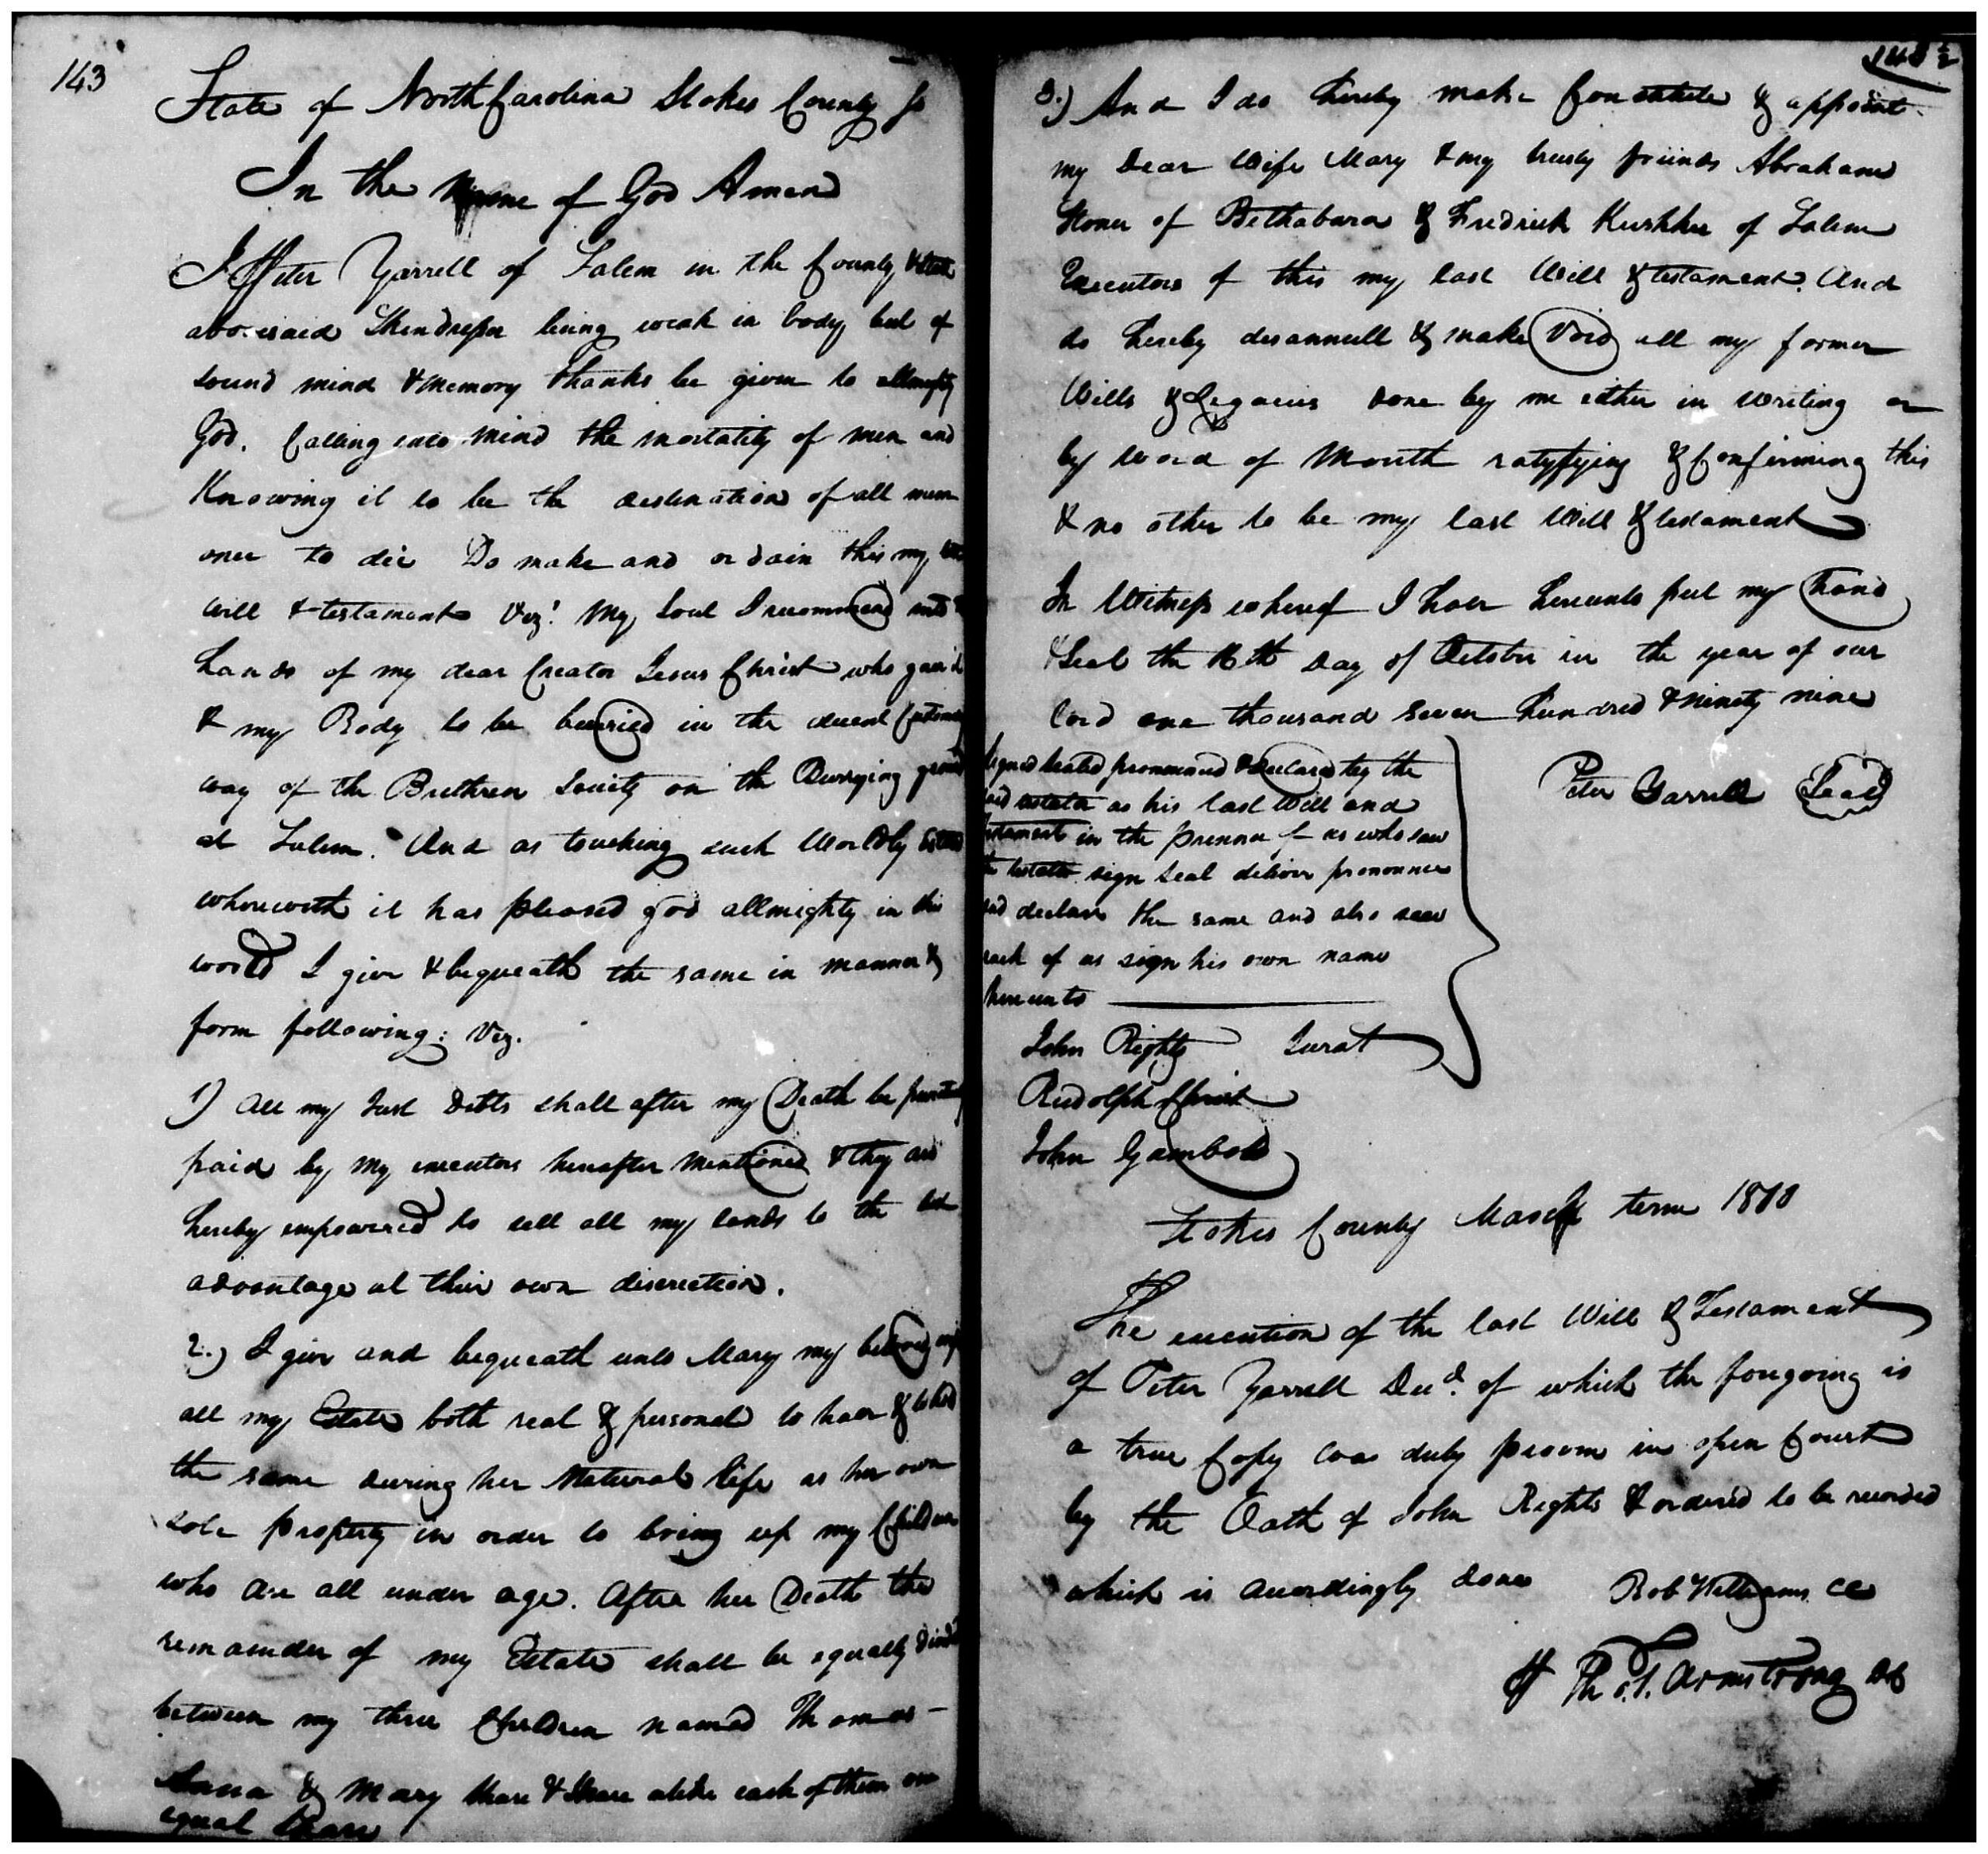 143
State of North Carolina Stokes County Ss
In the Name of God Amen
I Peter Yarrell of Salem in the County & State
abovesaid Skindresser being weak in body but of
sound mind & memory thanks be given to allmighty
God. Calling into mind the mortality of men and
Knowing it to be the destination of all men
once to die Do make and ordain this my
will & testament Viz! My Soul I recommend into
hands of my dear Creator Jesus Christ who gave it
& my Body to be burried in the decent Customary
way of the Brethren Society on the Burrying ground
at Salem. And as touching such Worldly Estate
wherewith it has pleased god allmighty in this
world I give & bequeath the same in manner &
form following: Viz.
1) All my Just Debts shall after my Death be
paid by my executors hereafter mentioned & they are
hereby empowered to sell all my lands to the
advantage at their own discreetion.
2.) I give and bequeath unto Mary my beloved
all my Estate both real & personal to have & to hold
the same during her Natural life as her own
sole property in order to bring up my Children
who are all under age. After her Death the
remainder of my Estate shall be equally
between my three Children named Thomas –
Anna & Mary share & share alike each of them an
equal Share
143½
3.) And I do hereby make Constitute & appoint
my Dear Wife Mary & my trusty friends Abraham
Stoner of Bethabara & Fredrick of Salem
Executors of this my last Will & testament. And
do hereby disannull & make Void all my former
Wills & Legacies done by me either in writing or
by Word of Mouth ratyfying & Confirming this
& no other to be my last Will & testament
In Witness whereof I have hereunto put my hand
& Seal the 16th Day of October in the year of our
lord one thousand Seven hundred & Ninety nine
Signed Sealed pronounced & declared by the
said testator as his last Will and
testament in the presence of us who saw
the testator sign Seal deliver pronounce
and declare the same and also saw
each of us sign his own name
hereunto
Peter Yarrell Seal
John Rights Jurat
Rudolph Christ
John Gambold
Stokes County March term 1800
The execution of the last Will & Testament
of Peter Yarrell Decd. of which the foregoing is
a true Copy was duly proven in open Court
by the Oath of John Rights & ordered to be recorded
which is accordingly done Rob Williams CC
Tho. T. Armstrong DC